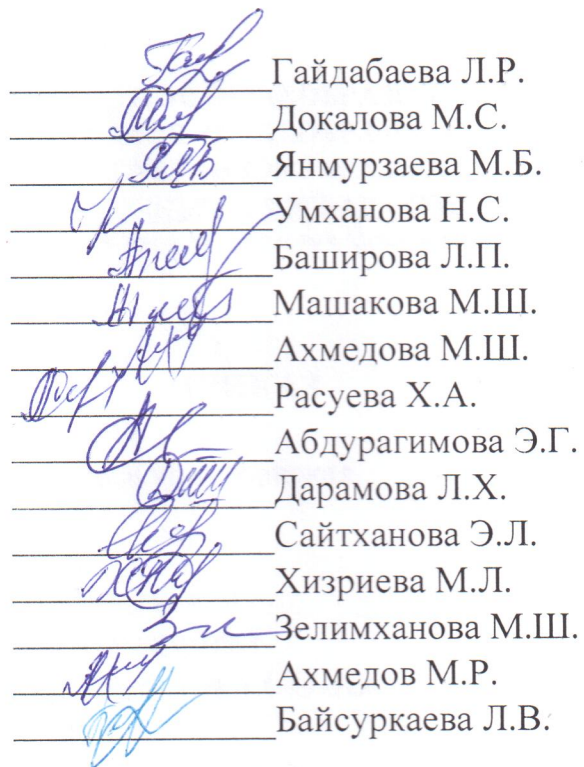 Гайдабаева Л.Р.
Докалова М.С.
Янмурзаева М.Б.
Умханова Н.С.
Баширова Л.П.
Машакова М.Ш.
Ахмедова М.Ш.
Расуева Х.А.
Абдурагимова Э.Г.
Дарамова Л.Х.
Сайтханова Э.Л.
Хизриева М.Л.
Зелимханова М.Ш.
Ахмедов М.Р.
Байсуркаева Л.В.